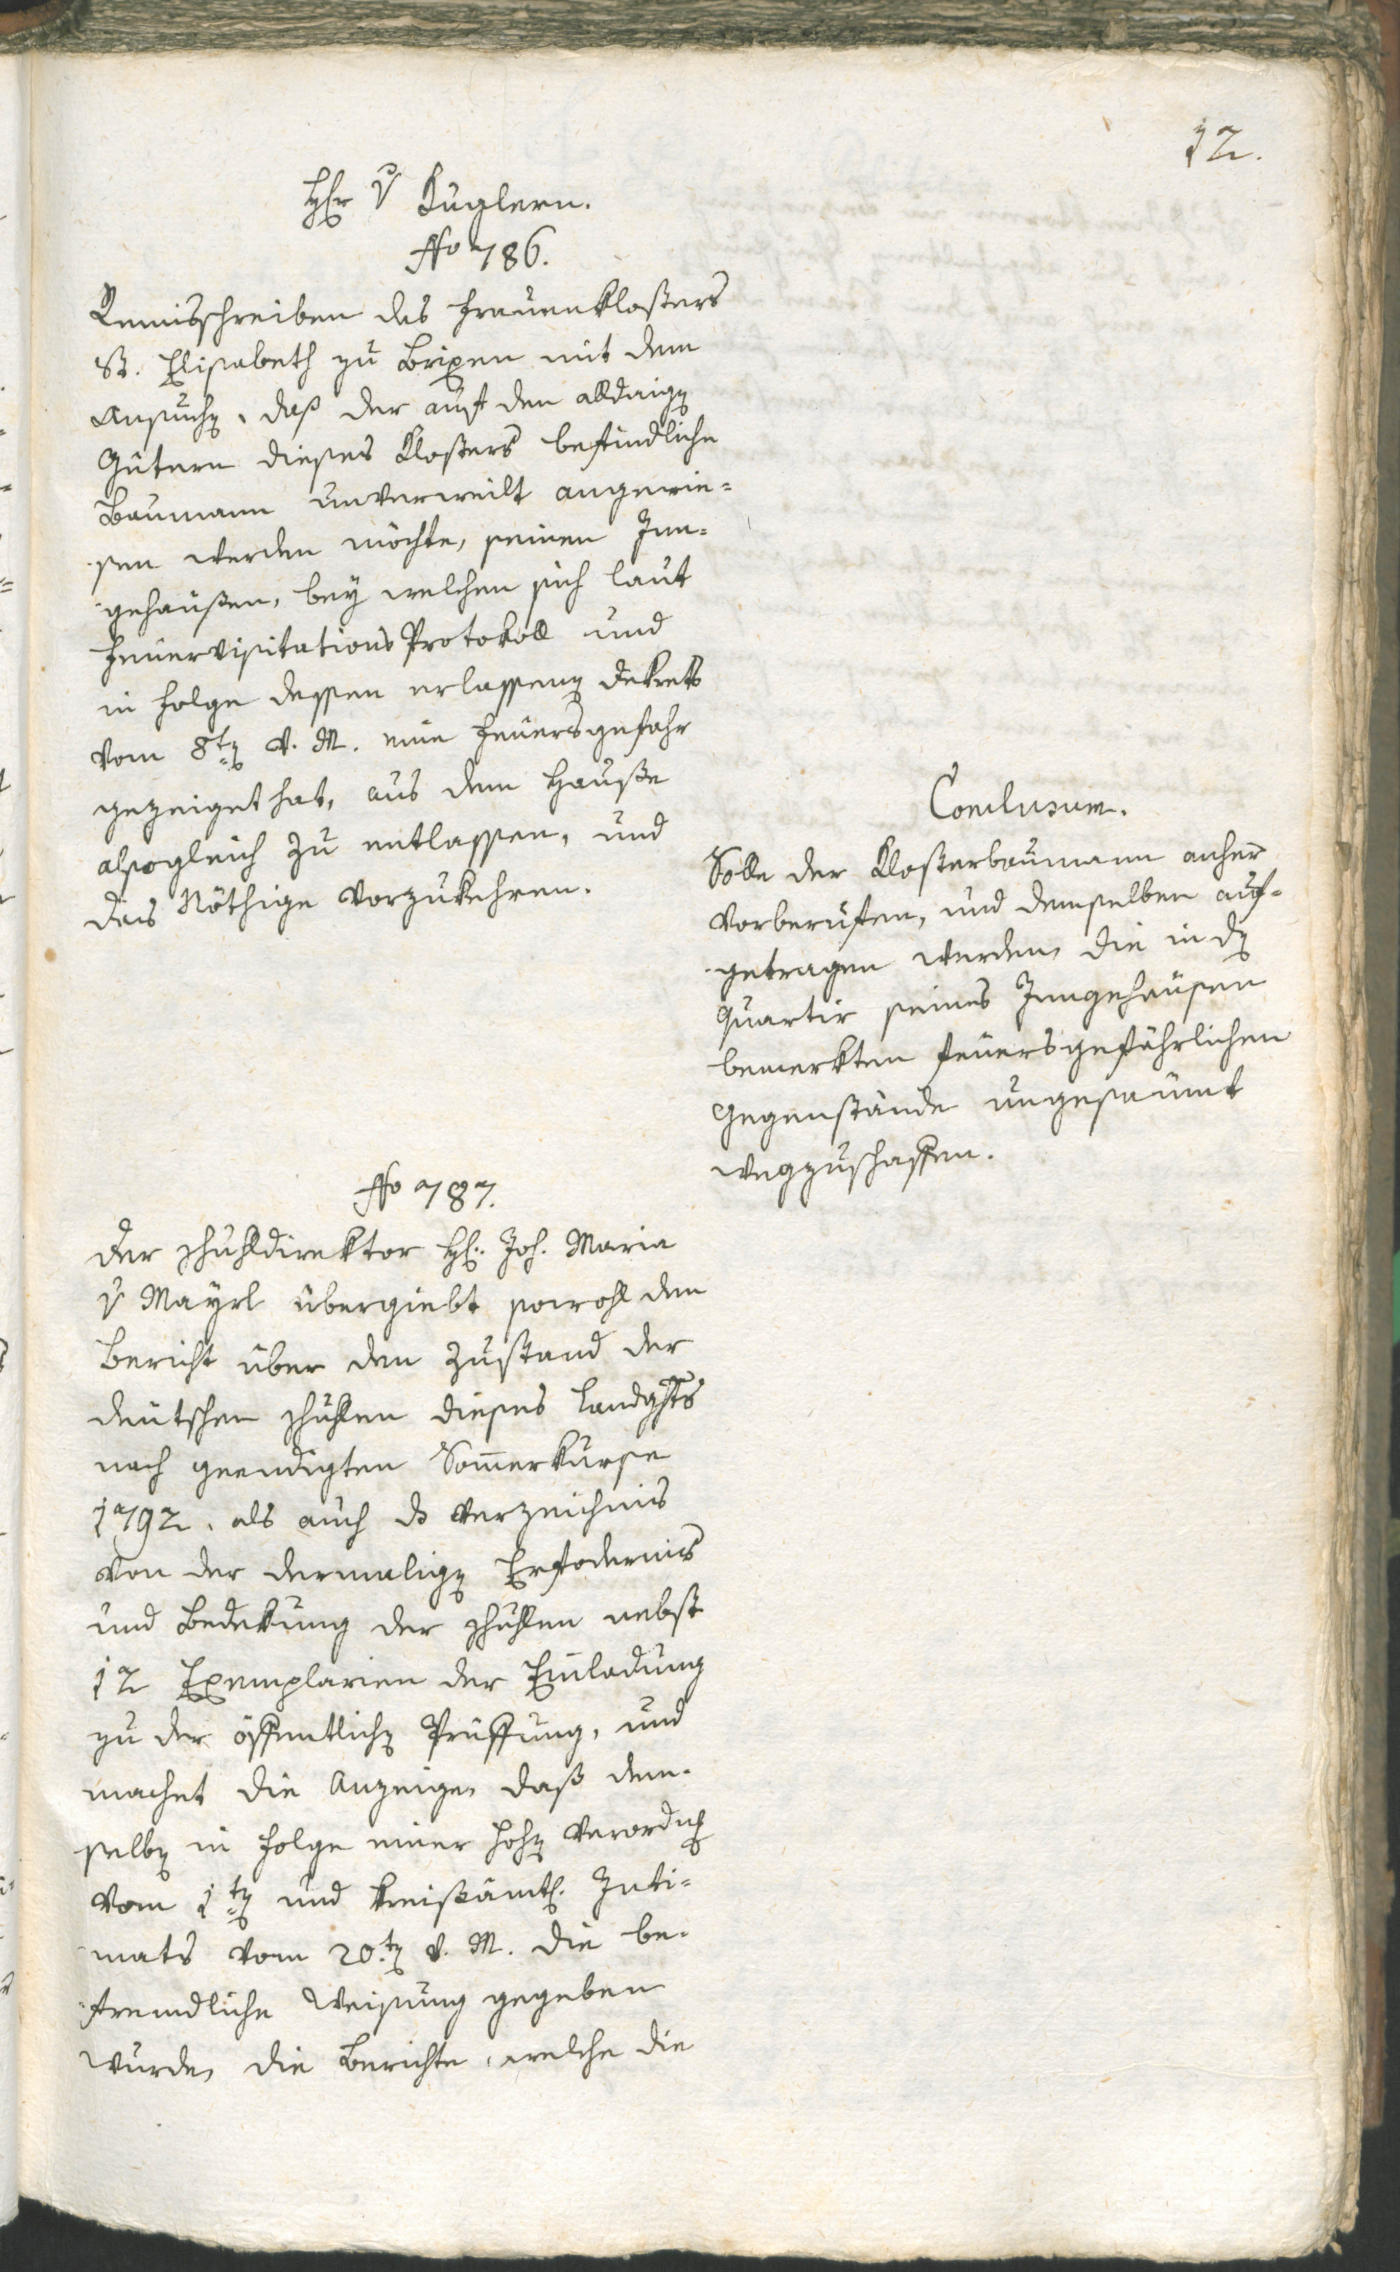 12.
H̅r v Kuglern.
No 786.
Remisschreiben des Frauenklosters
St. Elisabeth zu Brixen mit dem
Ansuchen, daß der auf den alldaigen
Gütern dieses Klosters befindliche
Baumann unverweilt angewie=
sen werden möchte, seinen Inn=
gehäußen, bey welchen sich laut
Feuervisitations Protokoll und
in Folge dessen erlassenen Dekrets
vom 8ten v. M. eine Feuersgefahr
gezeiget hat, aus dem Hauße
alsogleich zu entlassen, und
das Nöthige vorzukehren.
Conclusum.
Solle der Klosterbaumann anher
vorberufen, und demselben auf=
getragen werden, die in den
Quartir seines Inngehäusen
bemerkten feuersgefährlichen
Gegenstände ungesaümt
wegzuschaffen.
No 787.
Der Schuldirektor H: Joh. Maria
v Mayrl übergiebt sowohl den
Bericht über den Zustand der
deutschen Schulen dieses Landghts
nach geendigten Sommerkurse
1792, als auch ds Verzeichnis
von der dermaligen Erfodernis
und Bedekung der Schulen nebst
12 Exemplarien der Einladung
zu der öffentlichen Prüffung, und
machet die Anzeige, daß dem=
selben in Folge einer hohen Verordng
vom 1ten und kreisämtl. Inti=
mats vom 20ten v. M. die be=
fremdliche Weisung gegeben
wurde, die Berichte, welche die